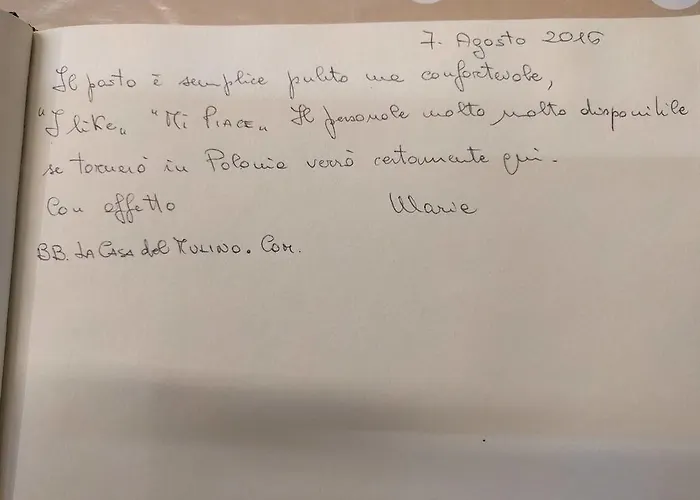 7. Agosto 2016
Il posto è semplice pulito ma confortevole,
"I like„ "Mi PIACE„ Il personale molto molto disponibile
se tornerò in Polonia verrò certamente qui.
Con affetto Maria
BB. LA CASA del MULINO. COM.